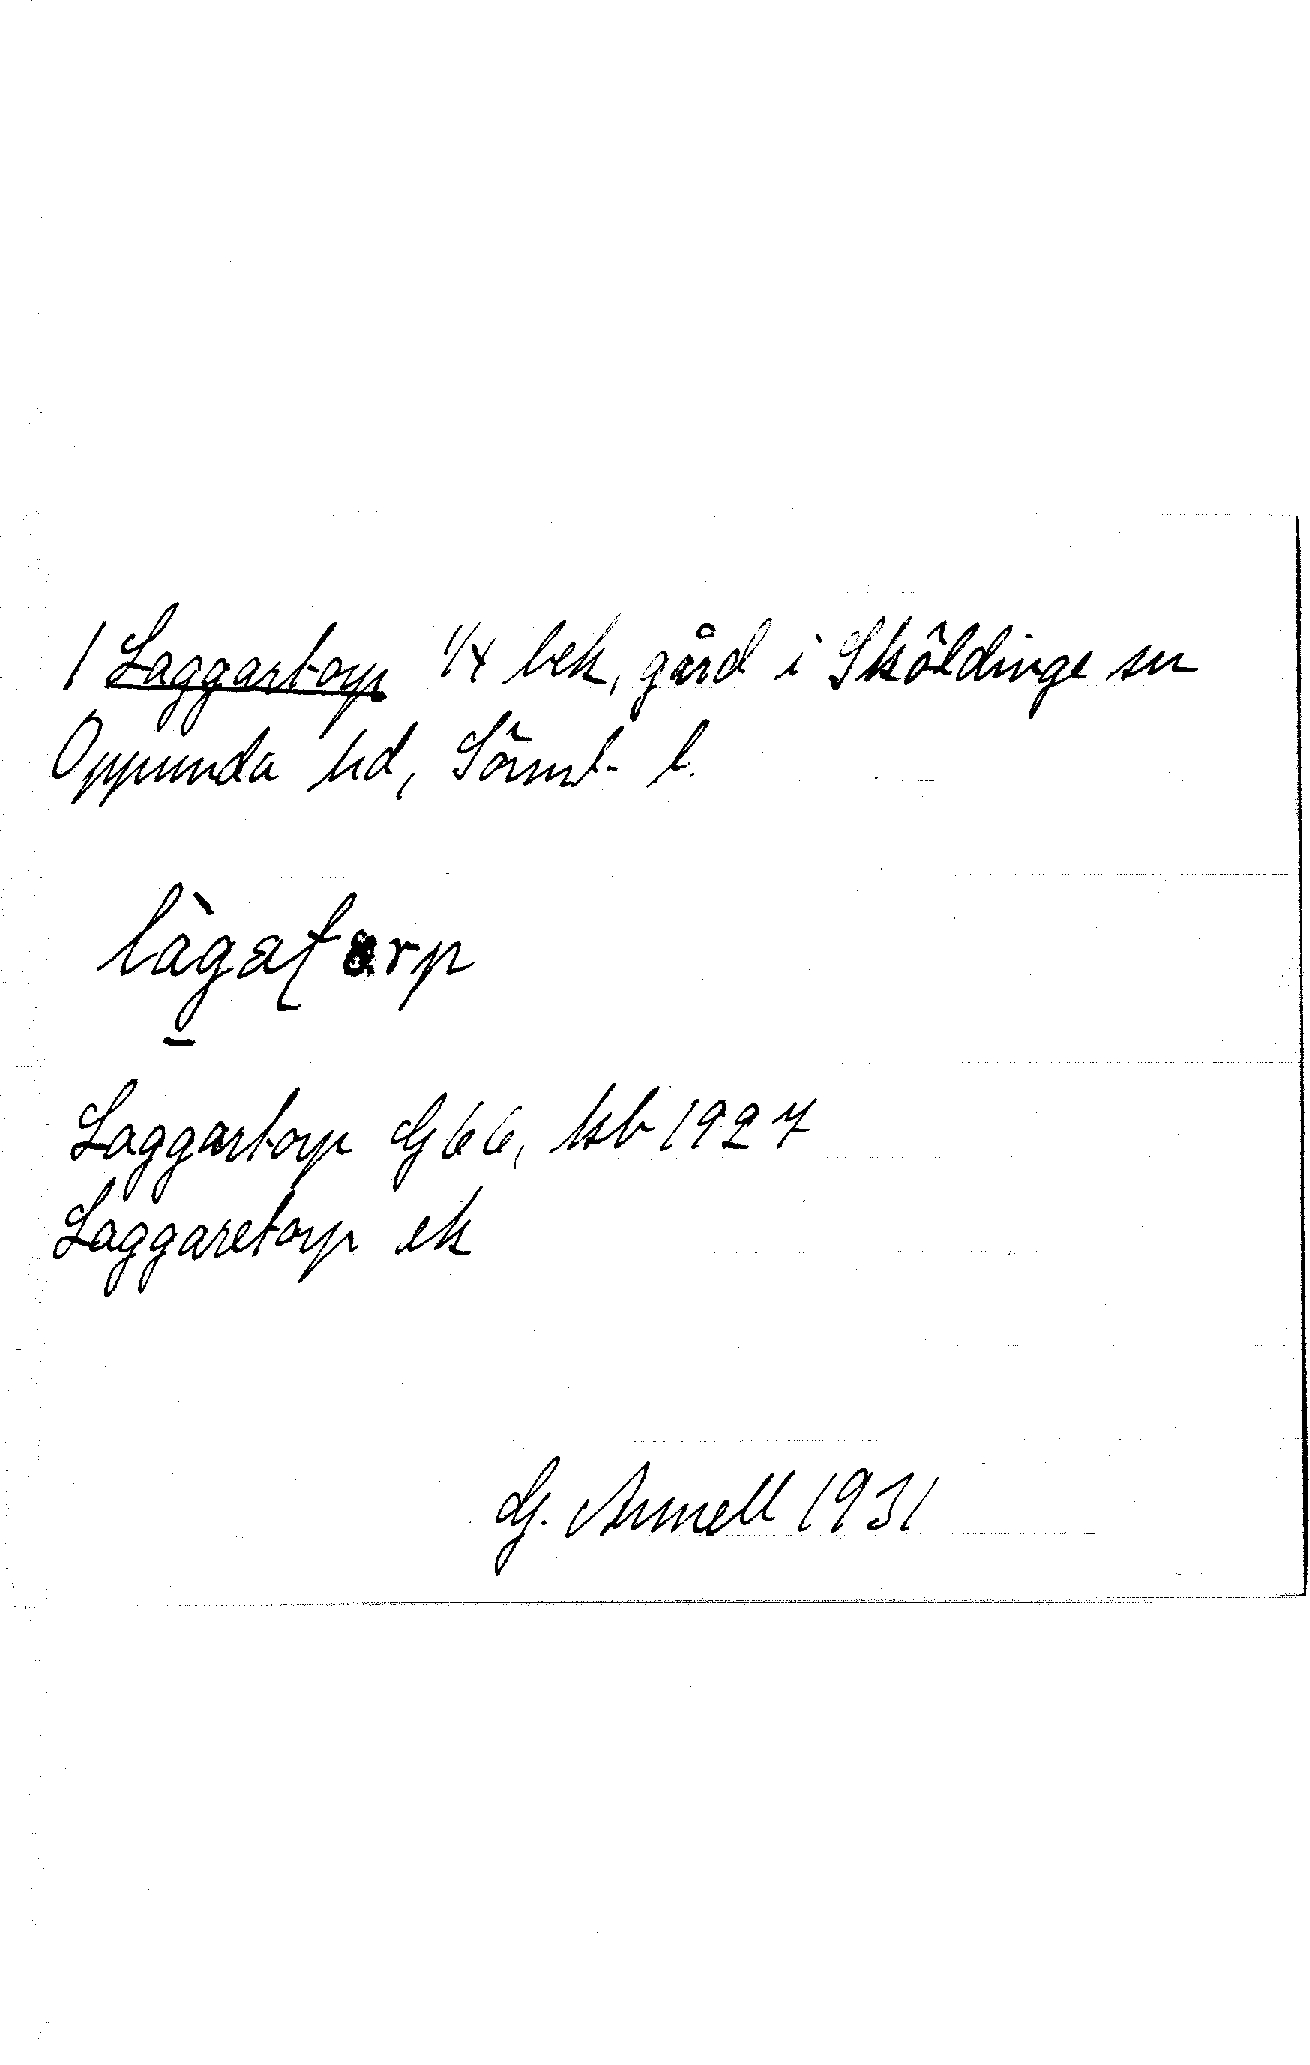 1 Laggartorp 1/4 bek, gård i Sköldinge sn
Oppunda hd, Sörml. l.
làgatarp
Laggartorp G66, kb 1927
Laggaretorp ek
G. Annell 1931